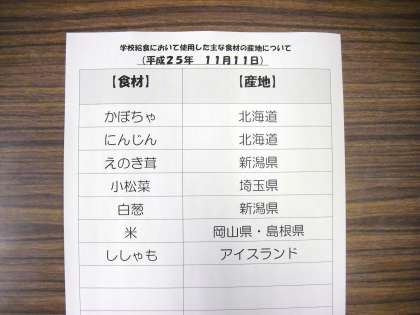 学校給食において使用した主な食材の産地について
（平成２５年　１１月１１日）
【食材】　【産地】
かぼちゃ　北海道
にんじん　北海道
えのき茸　新潟県
小松菜　埼玉県
白葱　新潟県
米　岡山県・島根県
ししゃも　アイスランド